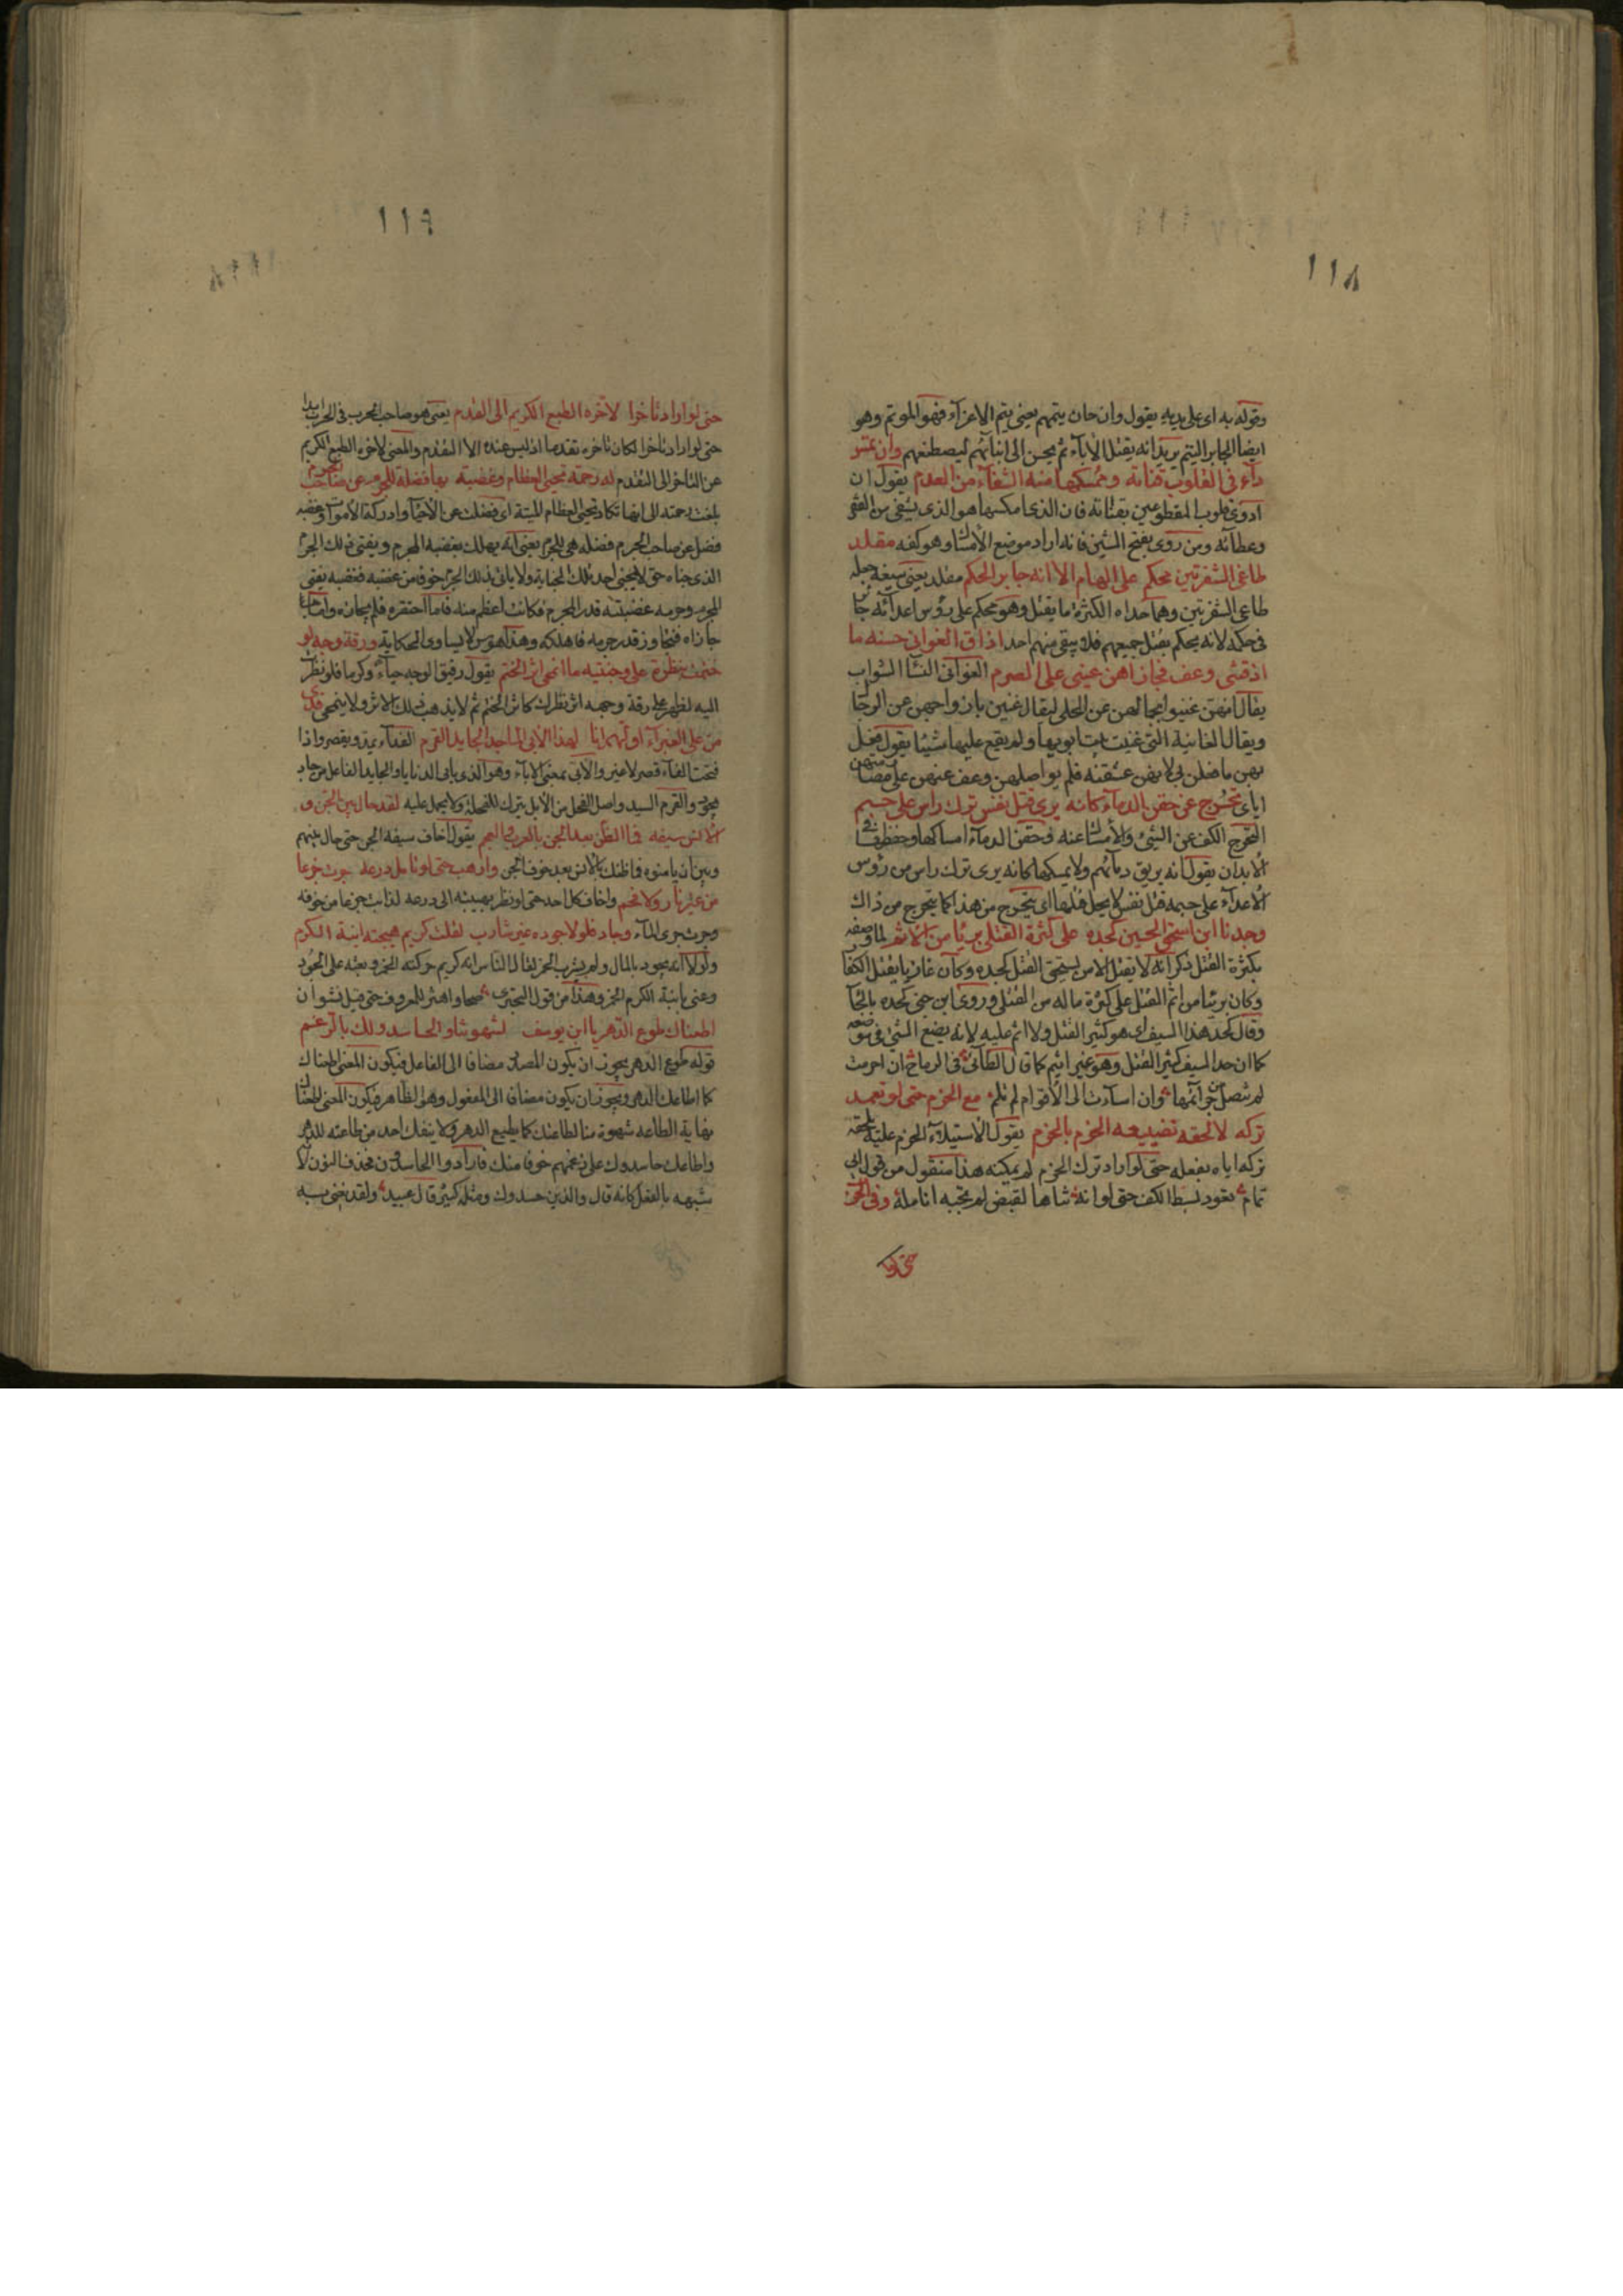 ١١٨
وقوله به اى على يديه يقول وان حان يتمهم يعنى يتم الاعزآء فهو الموتم وهو
ايضا الجابر اليتم يريد انه يقتل الاباء ثم يحسن الى ابنائهم ليصطنعهم وان تمس
دآء فى القلوب قناته وممسكها منه الشفآء من العدم يقول ان
ادوى قلوب المقطوعين بقناته فان الذى امكسها هو الذى يشفى من الفقر
وعطائه ومن روى بفتح السين فانه اراد موضع الأمساك وهو كفه مقلد
طاغى الشفرتين محكم على الهام الا انه جابر الحكم مقلد يعنى سيفه جعله
طاغى الشفرتين وهما حداه الكثرة ما يقتل وهو محكم على رؤس اعدائه جائر
فى حكمه لانه يحكم بقتل جميعهم فلا يبقى منهم احد اذاق الغوانى حسنه ما
اذقننى وعف فجازاهن عنى على الصرم الغوانى النسآ الشواب
يقال انهن غنين بجمالهن عن الحلى ليقال غنين بازواجهن عن الرجال
ويقال الغانية التى غنيت ببيت ابويها ولم يقع عليها شيئا يقول فعل
بهن ما فعلن بى لانهن عشقنه فلم يواصلهن وعف عنهن على
اياى تحرج عن حقن الدمآء كانه يرى قتل نفس ترك راس على جسم
التحرج الكف عن الشئ والأمساك عنه وحقن الدمآء امساكها وحفظها فى
الابدان يقول انه يريق دمآئهم ولا يمسكها كانه يرى ترك راس من رؤس
الأعدآء على جسمه قتل نفس لا يحل قتلها اى يتحرج من هذا كما يتحرج من ذاك
وجدنا ابن اسحق الحسين كجده على كثرة القتلى بريا من الاثم لما وصفه
بكثرة القتل ذكر انه لا يقتل الا من يستحق القتل كجده وكان غازيا يقتل الكفا
وكان بريئا من اثم القتل على كثرة ماله من القتلى وروى ابن جنى كحده بالحآ
وقال كحد هذا السيف اى هو كثير القتل ولا اثم عليه لانه يضع الشئ فى موضعه
كما ان حد السيف كثير القتل وهو غير اثيم كما قال الطائى فى الرماح ان اجرمت
لم تتصل جرآئمها وان اسآءت الى الأقوام لم تلم مع الحزم حتى لو تعمد
تركه لالحقه تضييعه الحزم بالحزم يقول لأستيلآء الحزم عليه يلحقه
تركه اياه بفعله حتى لو اراد ترك الحزم لم يمكنه هذا منقول من قول ابى
تمام تعود بسط الكف حتى لو انه ثناها لقبض لم تجبه انامله وفى الحرب
حتى لو
١١٩
حتى لو اراد تأخرا لآخره الطبع الكريم الى القدم يعنى هو صاحب الحرب فى الحرب ابدا
حتى لو اراد تأخرا لكان تأخره تقدما اذ ليس عنده الا التقدم والمعنى لاخره الطبع الكريم
عن التأخر الى التقدم له رحمة تحيى العظام وغضبة بها فضلة للجرم عن صاحب الجرم
بلغت رحمته الى انها تكاد تحيى العظام الميتة اى فضلت عن الأحيآ وادركت الأموات وغضبه
فضل عن صاحب الجرم فضلة هى للجرم يعنى انه يهلك بغضبه المجرم ويفنى ذلك الجرم
الذى جناه حتى لا يجنى احد تلك الجناية ولا يأتى بذلك الجرم خوفا من غضبه فغضبه يفنى
المجرم وجرمه غضبته قدر المجرم فكانت اعظم منه فاما احتقره فلم يجازه واما
جازاه فتجاوز قدر جرمه فاهلكه وهذا هوس لا يساوى الحكاية ورقة وجه لو
ختمت بنظرة على وجنتيه ما انمحى اثر الختم يقول رقيق الوجه حيآء وكرما فلو نظرت
اليه لظهر على رقة وجهه اثر نظرك كاثر الختم ثم لا يذهب ذلك الاثر ولا ينمحى فدى
من على الغبرآء اولهم انا لهذا الأبى الماجد الجايد القرم الفدآء يمد ويقصر واذا
فتحت الفآء قصر لا غير والآبى بمعنى الاباء وهو الذى يأبى الدنايا والجايد الفاعل من جاد
يجود والقرم السيد واصل الفحل من الأبل يترك للفحلة ولا يحمل عليه لقد حال بين الجن و
الأنس سيفه فما الظن بعد الجن بالعرب والعجم يقول اخاف سيفه الجن حتى حال بينهم
وبين ان يأمنوه فما ظنك بالانس بعد خوف الجن وارهب حتى لو تأمل درعه جرت جزعا
من غير نار ولا فحم واخاف كل احد حتى لو نظر بهيبته الى درعه لذابت جزعا من خوفه
وجرت جرى المآء وجاد فلولا جوده غير شارب لقلت كريم هيجته ابنة الكرم
ولولا انه يجود بالمال ولم يشرب الخمر لقال الناس انه كريم حركته الخمر وبعثه على الجود
وعنى بابنة الكرم الخمر وهذا من قول البحترى صحا واهتز للمعروف حتى قيل نشوان
اطعناك طوع الدهر يا ابن يوسف لشهوتنا والحاسدو لك بالرغم
قوله طوع الدهر يجوز ان يكون المصدر مضافا الى الفاعل فيكون المعنى اطعناك
كما اطاعك الدهر ويجوز ان يكون مضافا الى المفعول وهو الظاهر فيكون المعنى اطعناك
نهاية الطاعه شهوة منا لطاعتك كما يطيع الدهر ولا ينفك احد من طاعته للدهر
واطاعك حاسدوك على رغمهم خوفا منك فاراد والحاسدون فحذف النون لا
شبهه بالفعل كانه قال والذين حسدوك ومثله كثير قال عبيد ولقد يغنى به